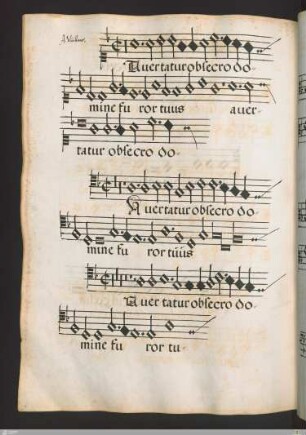 Avertatur obsecro do-
mine fu ror tuus aver-
tatur obsecro do-
Avertatur obsecro do-
mine fu ror tuus
Aver tatur obsecro do-
mine fu ror tu-